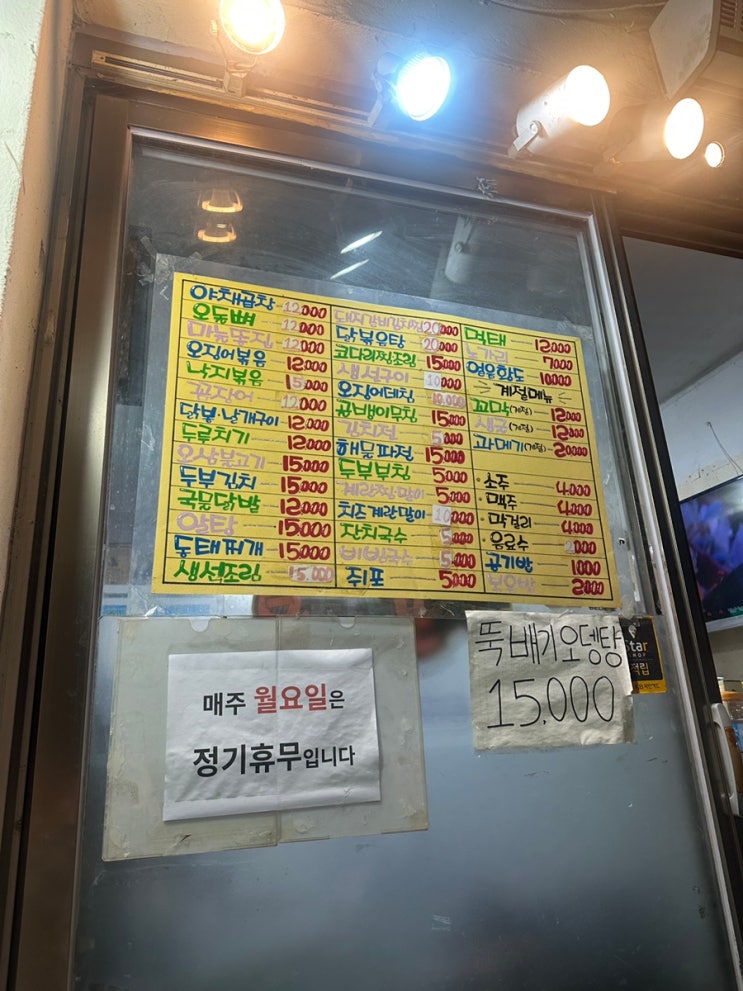 야채곱창 12,000
오돌뼈 12,000
마늘똥집 12,000
오징어볶음 12,000
낙지볶음 15,000
꼼장어 12,000
닭봉·날개구이 12,000
두루치기 12,000
오삼불고기 15,000
두부김치 15,000
국물닭발 12,000
알탕 15,000
동태찌개 15,000
생선조림 15,000
돼지갈비김치찜 20,000
닭볶음탕 20,000
코다리찜조림 15,000
생선구이 10,000
오징어데침 10,000
골뱅이무침 15,000
김치전 5,000
해물파전 15,000
두부부침 5,000
계란찜·말이 5,000
치즈계란말이 10,000
잔치국수 5,000
비빔국수 5,000
쥐포 5,000
먹태 12,000
노가리 7,000
황도 10,000
계절메뉴
꼬막(계절) 12,000
생굴(계절) 12,000
과메기(계절) 20,000
·소주 4,000
·맥주 4,000
·막걸리 4,000
·음료수 2,000
공기밥 1,000
볶음밥 2,000
뚝배기오뎅탕
15,000
매주 월요일은
정기휴무입니다
star
적립